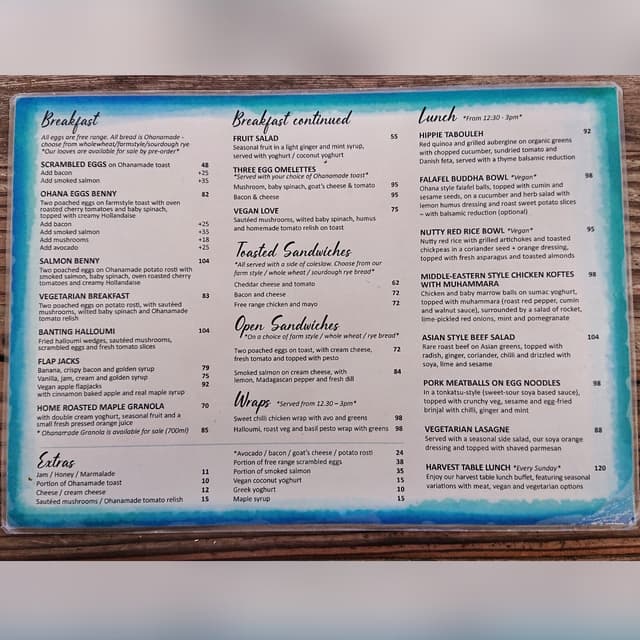 Breakfast
All eggs are free range. All bread is Ohanamade -
choose from wholewheat/farmstyle/sourdough rye
*Our loaves are available for sale by pre-order*
SCRAMBLED EGGS on Ohanamade toast 48
Add bacon +25
Add smoked salmon +35
OHANA EGGS BENNY 82
Two poached eggs on farmstyle toast with oven
roasted cherry tomatoes and baby spinach,
topped with creamy Hollandaise
Add bacon +25
Add smoked salmon +35
Add mushrooms +18
Add avocado +25
SALMON BENNY 104
Two poached eggs on Ohanamade potato rosti with
smoked salmon, baby spinach, oven roasted cherry
tomatoes and creamy Hollandaise
VEGETARIAN BREAKFAST 83
Two poached eggs on potato rosti, with sautéed
mushrooms, wilted baby spinach and Ohanamade
tomato relish
BANTING HALLOUMI 104
Fried halloumi wedges, sautéed mushrooms,
scrambled eggs and fresh tomato slices
FLAP JACKS
Banana, crispy bacon and golden syrup 79
Vanilla, jam, cream and golden syrup 75
Vegan apple flapjacks 92
with cinnamon baked apple and real maple syrup
HOME ROASTED MAPLE GRANOLA 70
with double cream yoghurt, seasonal fruit and a
small fresh pressed orange juice
* Ohanamade Granola is available for sale (700ml) 85
Extras
Jam / Honey / Marmalade 11
Portion of Ohanamade toast 10
Cheese / cream cheese 12
Sautéed mushrooms / Ohanamade tomato relish 15
Breakfast continued
FRUIT SALAD 55
Seasonal fruit in a light ginger and mint syrup,
served with yoghurt / coconut yoghurt
THREE EGG OMELETTES
*Served with your choice of Ohanamade toast*
Mushroom, baby spinach, goat's cheese & tomato 95
Bacon & cheese 95
VEGAN LOVE 75
Sautéed mushrooms, wilted baby spinach, humus
and homemade tomato relish on toast
Toasted Sandwiches
*All served with a side of coleslaw. Choose from our
farm style / whole wheat / sourdough rye bread*
Cheddar cheese and tomato 62
Bacon and cheese 72
Free range chicken and mayo 72
Open Sandwiches
*On a choice of farm style / whole wheat / rye bread*
Two poached eggs on toast, with cream cheese, 72
fresh tomato and topped with pesto
Smoked salmon on cream cheese, with 84
lemon, Madagascan pepper and fresh dill
Wraps *Served from 12.30 – 3pm*
Sweet chilli chicken wrap with avo and greens 98
Halloumi, roast veg and basil pesto wrap with greens 98
*Avocado / bacon / goat's cheese / potato rosti 24
Portion of free range scrambled eggs 38
Portion of smoked salmon 35
Vegan coconut yoghurt 15
Greek yoghurt 10
Maple syrup 15
Lunch *From 12:30 - 3pm*
HIPPIE TABOULEH 92
Red quinoa and grilled aubergine on organic greens
with chopped cucumber, sundried tomato and
Danish feta, served with a thyme balsamic reduction
FALAFEL BUDDHA BOWL *Vegan* 98
Ohana style falafel balls, topped with cumin and
sesame seeds, on a cucumber and herb salad with
lemon humus dressing and roast sweet potato slices
– with balsamic reduction (optional)
NUTTY RED RICE BOWL *Vegan* 95
Nutty red rice with grilled artichokes and toasted
chickpeas in a coriander seed + orange dressing,
topped with fresh asparagus and toasted almonds
MIDDLE-EASTERN STYLE CHICKEN KOFTES 98
WITH MUHAMMARA
Chicken and baby marrow balls on sumac yoghurt,
topped with muhammara (roast red pepper, cumin
and walnut sauce), surrounded by a salad of rocket,
lime-pickled red onions, mint and pomegranate
ASIAN STYLE BEEF SALAD 104
Rare roast beef on Asian greens, topped with
radish, ginger, coriander, chilli and drizzled with
soya, lime and sesame
PORK MEATBALLS ON EGG NOODLES 98
In a tonkatsu-style (sweet-sour soya based sauce),
topped with crunchy veg, sesame and egg-fried
brinjal with chilli, ginger and mint
VEGETARIAN LASAGNE 88
Served with a seasonal side salad, our soya orange
dressing and topped with shaved parmesan
HARVEST TABLE LUNCH *Every Sunday* 120
Enjoy our harvest table lunch buffet, featuring seasonal
variations with meat, vegan and vegetarian options